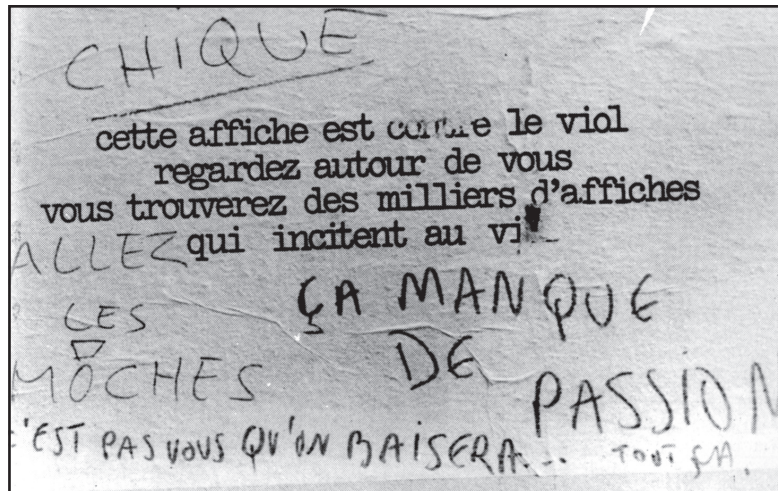 CHIQUÉ
cette affiche est contre le viol
regardez autour de vous
vous trouverez des milliers d'affiches
qui incitent au vi
ALLEZ
LES
MOCHES
ÇA MANQUE
DE
PASSION
TOUT ÇA.
C'EST PAS VOUS QU'ON BAISERA...